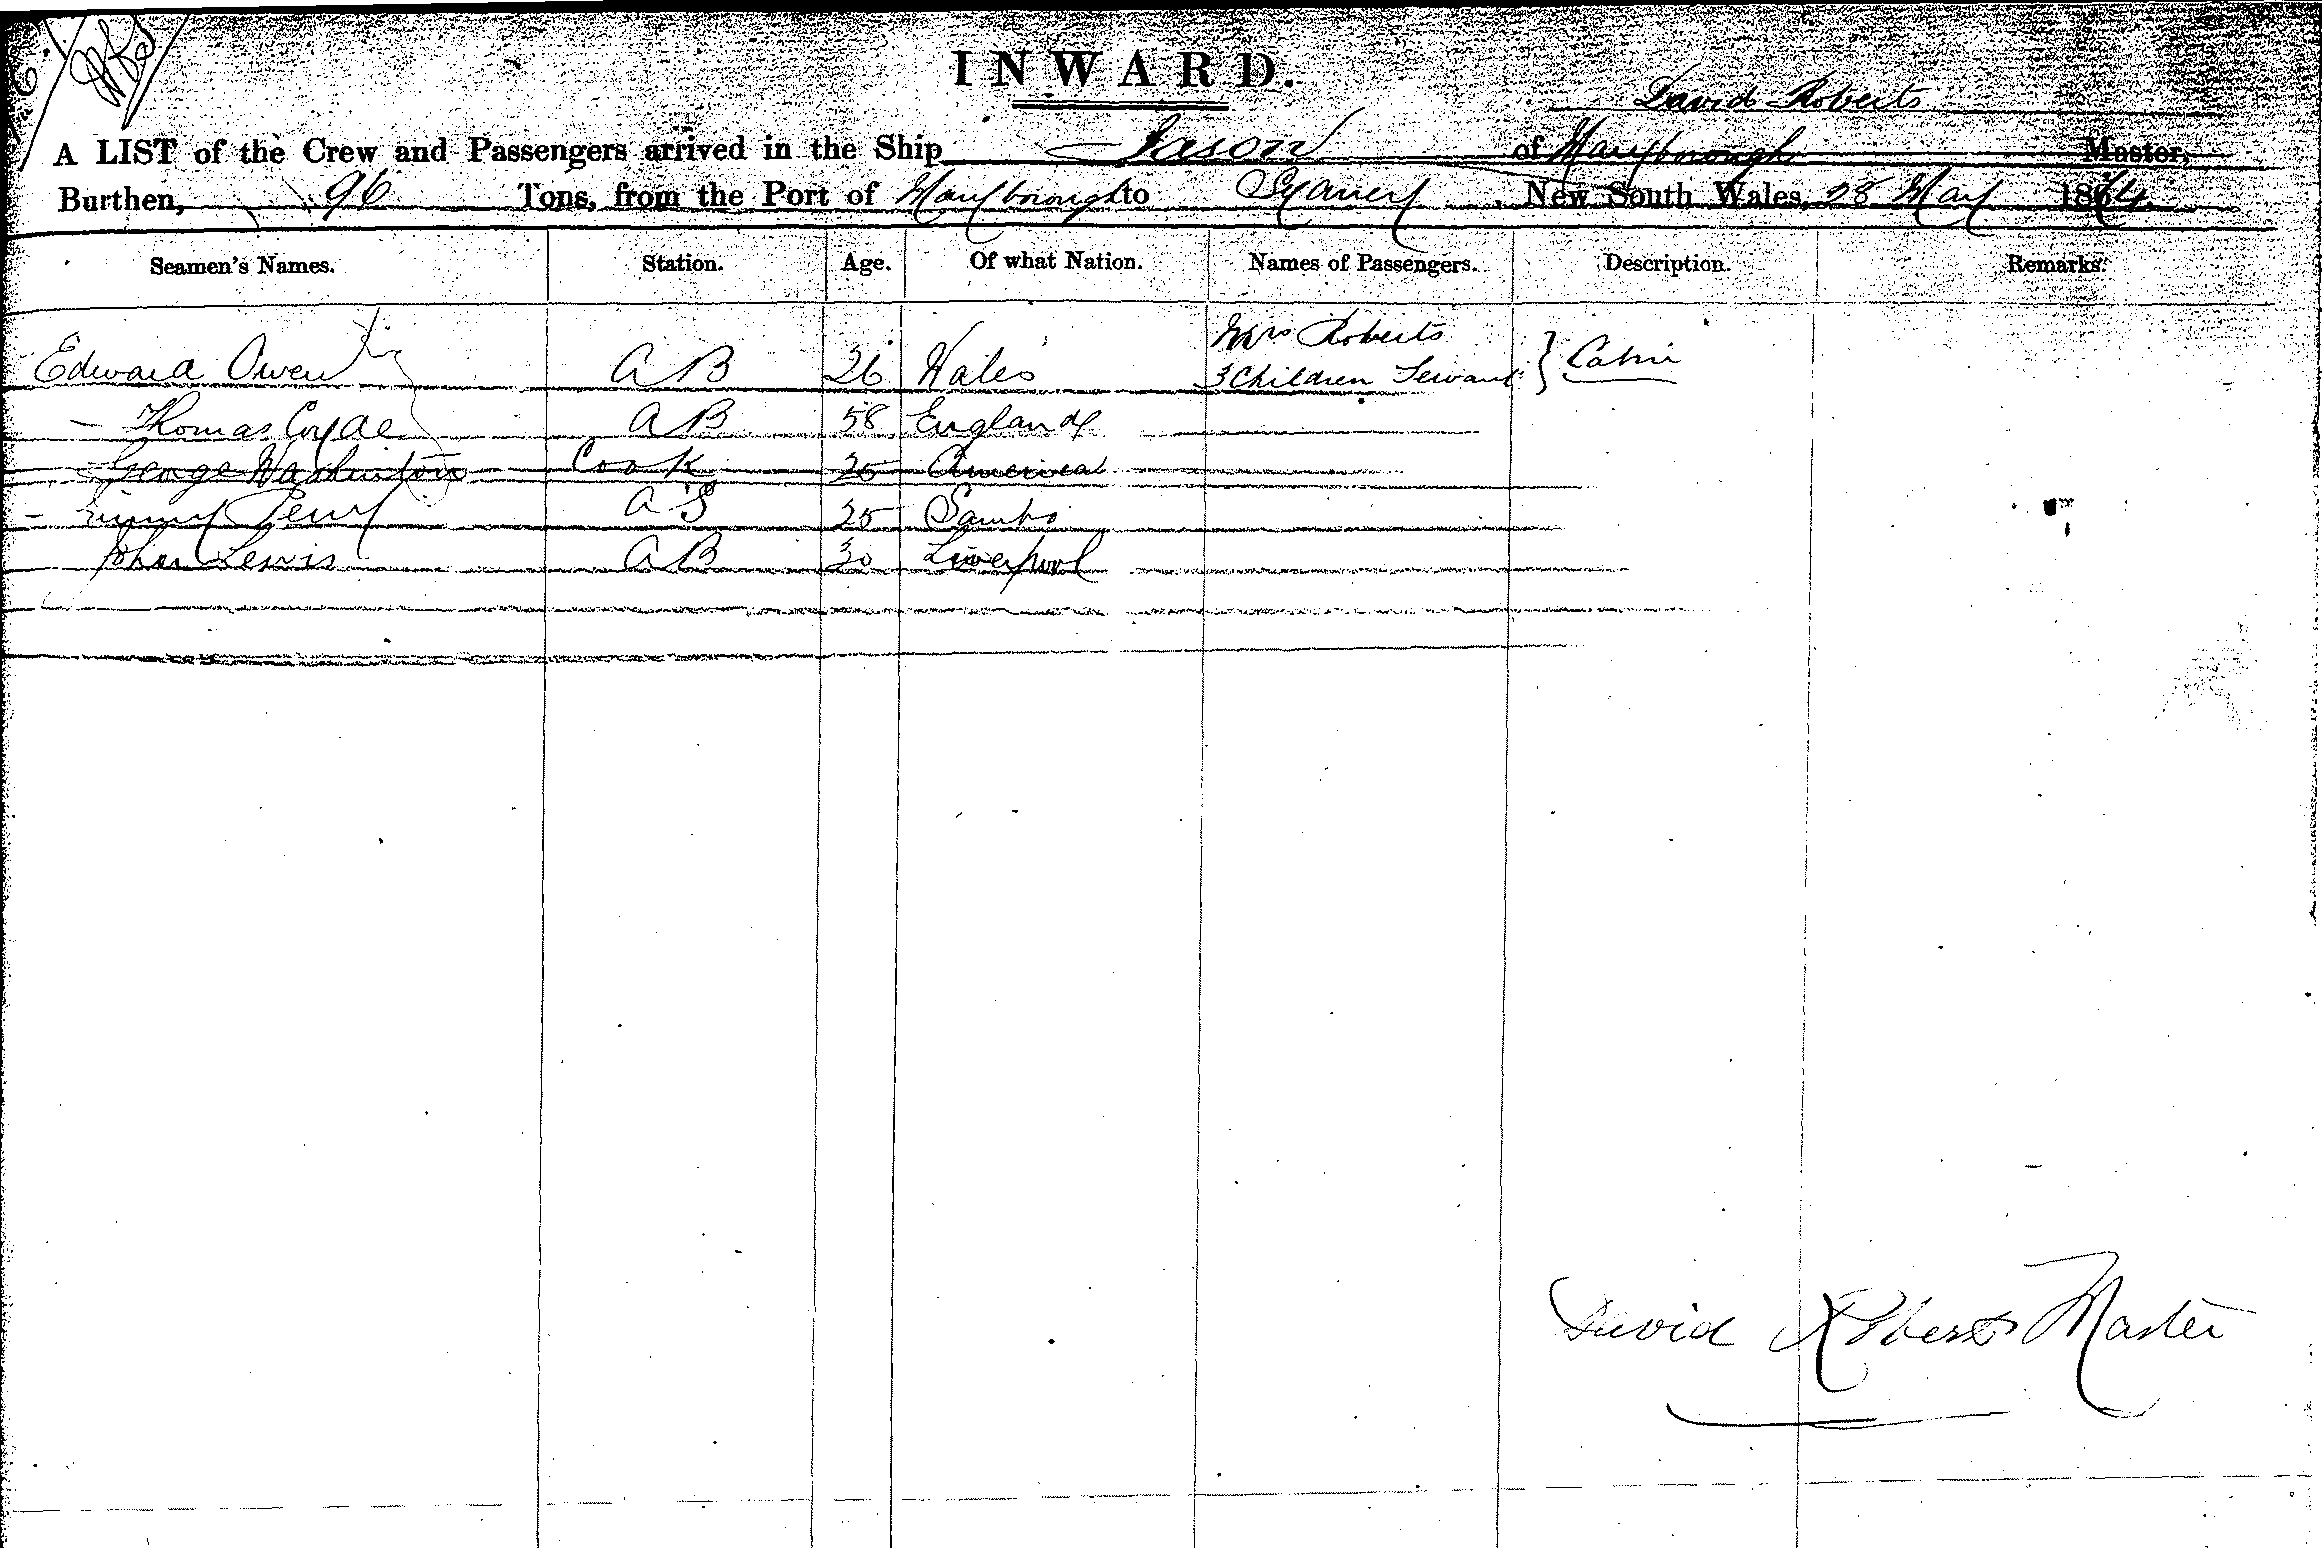 INWARD.
David Roberts
A LIST of the Crew and Passengers arrived in the Ship Jason of Maryborough Master,
Burthen, 96 Tons, from the Port of Maryborough to Sydney, New South Wales, 28 May 1874
Seamen's Names. Station. Age. Of what Nation. Names of Passengers. Description. Remarks.
Mrs Roberts
Edward Owen A B 26 Wales 3 Children Servant } Cabin
Thomas A B 58 England
George Washinton Cook 25 America
25
John Lewis A B 30 Liverpool
David Roberts Master